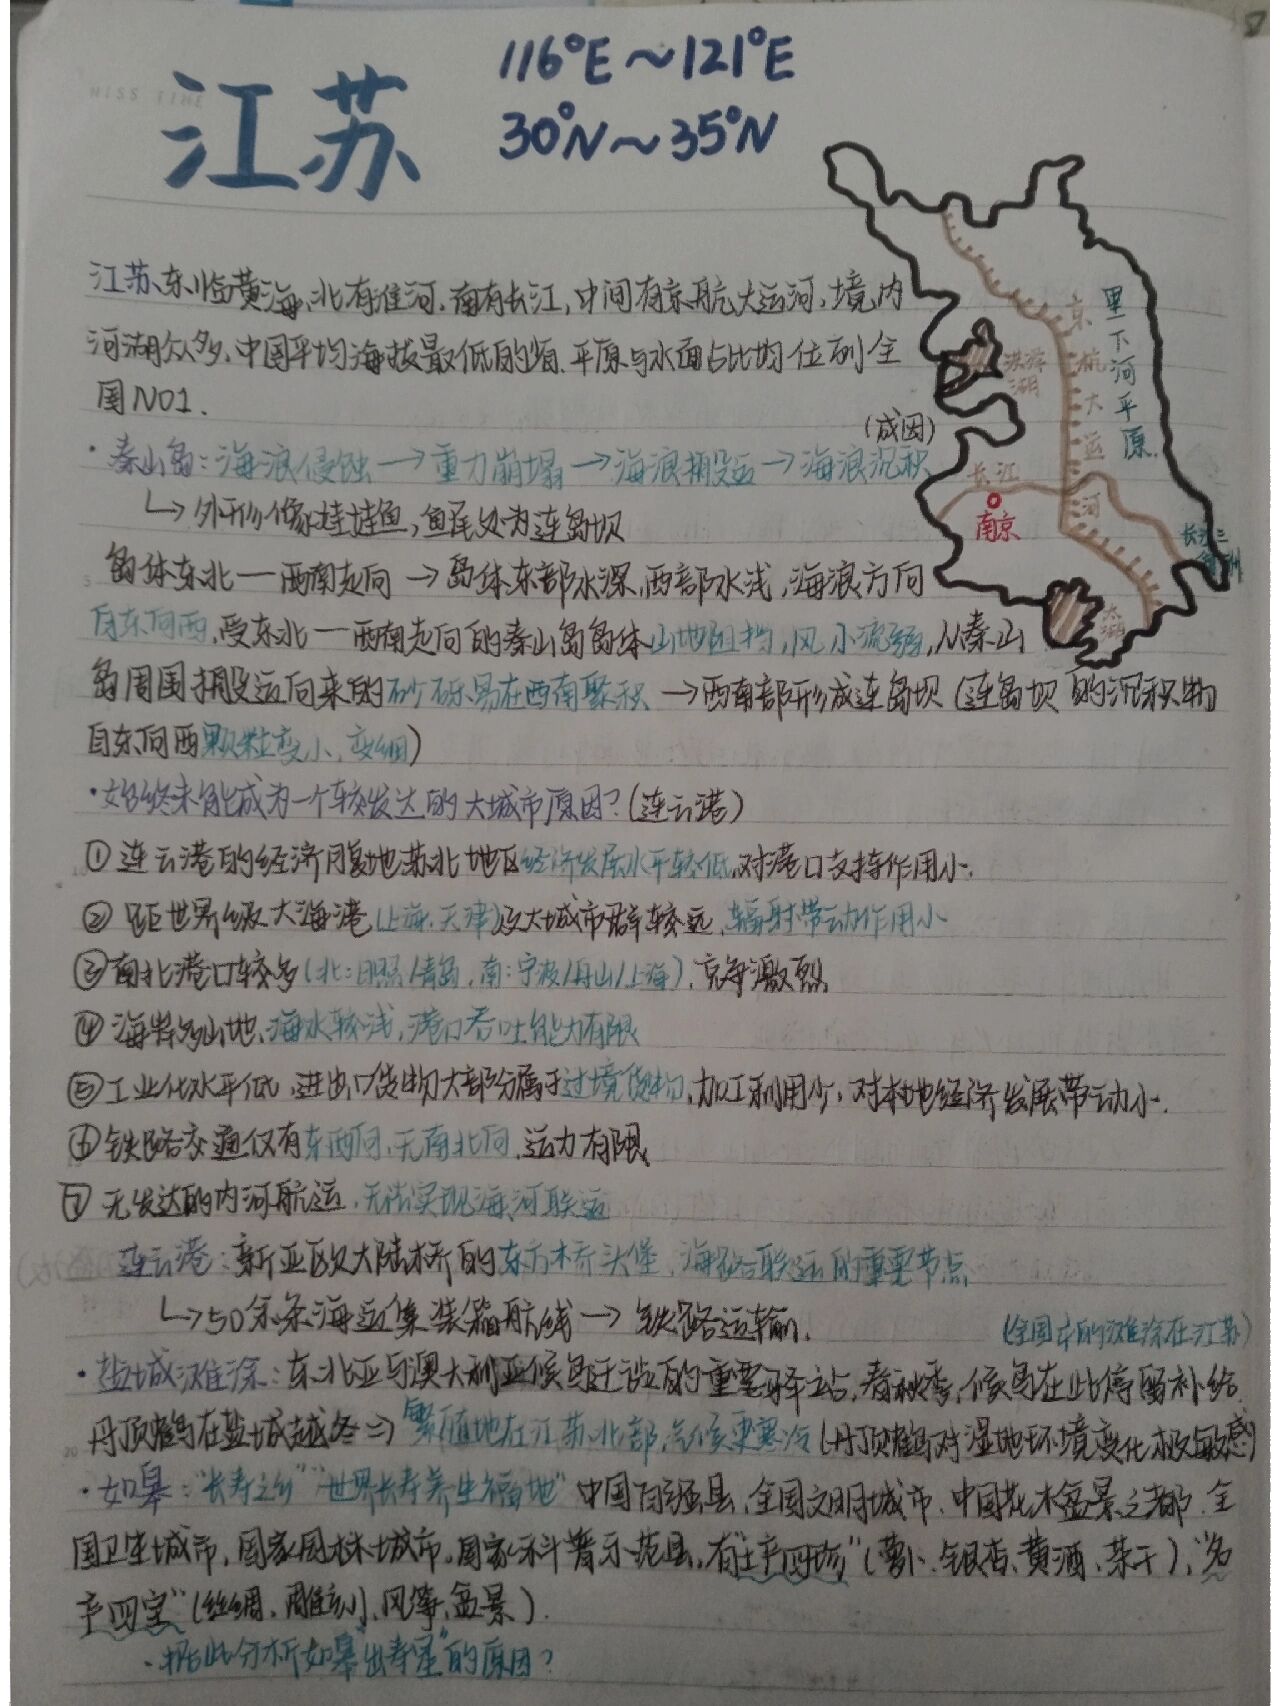 MISS TIME
江苏
116°E～121°E
30°N～35°N
江苏东临黄海,北有淮河,南有长江,中间有京航大运河,境内
河湖众多,中国平均海拔最低的省,平原与水面占比均位列全
国NO1.
里下河平原
京杭大运河
洪泽湖
长江
南京
长江三
洲
太湖
(成因)
·秦山岛:海浪侵蚀→重力崩塌→海浪搬运→海浪沉积
↳外形像娃娃鱼,鱼尾处为连岛坝
岛体东北—西南走向→岛体东部水深,西部水浅,海浪方向
自东向西,受东北—西南走向的秦山岛岛体山地阻挡,风小流弱,从秦山
岛周围搬运向来的砂砾易在西南聚积→西南部形成连岛坝(连岛坝的沉积物
自东向西颗粒变小、变细)
·始终未能成为一个较发达的大城市原因?(连云港)
①连云港的经济腹地苏北地区经济发展水平较低,对港口支持作用小.
②距世界级大海港(上海、天津)及大城市群较远,辐射带动作用小
③南北港口较多(北:日照/青岛,南:宁波/舟山/上海),竞争激烈
④海岸多山地,海水较浅,港口吞吐能力有限
⑤工业化水平低,进出口货物大部分属于过境货物,加工利用少,对本地经济发展带动小.
⑥铁路交通仅有东西向,无南北向,运力有限
⑦无发达的内河航运,无法实现海河联运
连云港:新亚欧大陆桥的东方桥头堡,海路联运的重要节点
↳50余条海运集装箱航线→铁路运输.
(全国 的滩涂在江苏)
·盐城滩涂:东北亚与澳大利亚候鸟迁徙的重要驿站,春秋季,候鸟在此停留补给
丹顶鹤在盐城越冬⇒繁殖地在江苏北部,气候更寒冷(丹顶鹤对湿地环境变化极敏感)
·如皋:"长寿之乡""世界长寿养生福地"中国百强县,全国文明城市,中国花木盆景之都,全
国卫生城市,国家园林城市,国家科普示范县,有"土产四珍"(萝卜、银杏、黄酒、茶干),"名
产四宝"(丝绸、雕刻、风筝、盆景).
·据此分析如皋"出寿星"的原因?